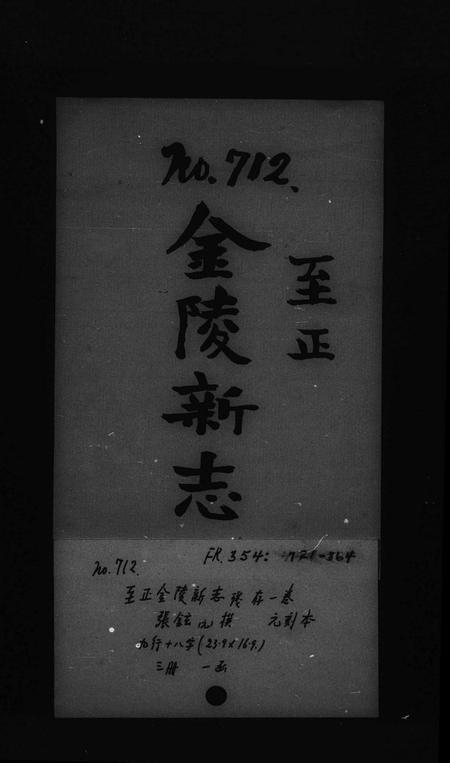 No. 712.
至正
金陵新志
No. 712.
FR. 354:
至正金陵新志 残存一卷
張鉉 元撰 元刻本
九行十八字(23.9×16.9)
三冊 一函